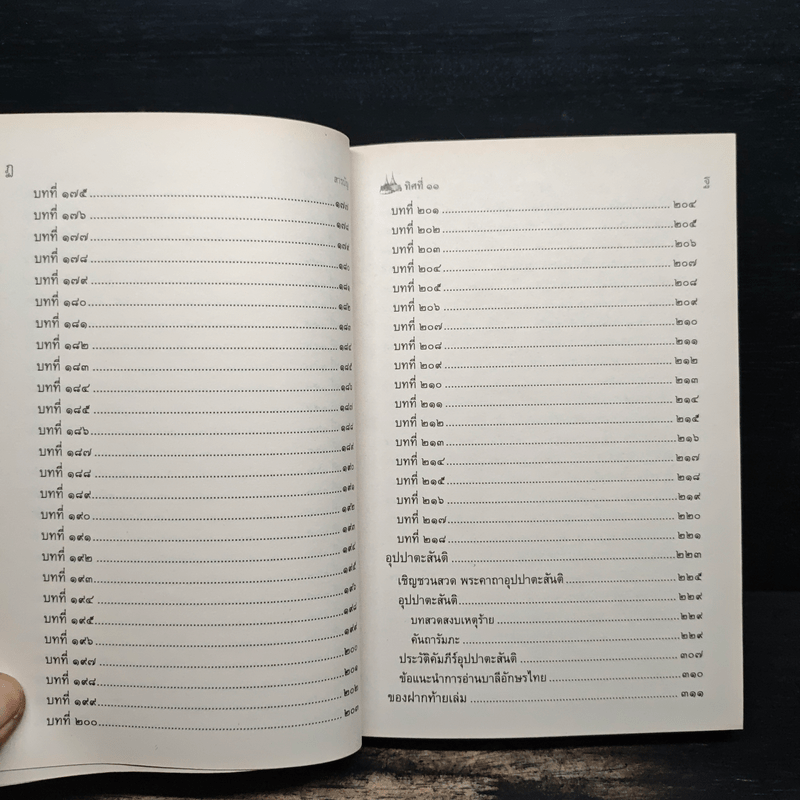 สารบัญ
บทที่ ๑๗๕ ........ ๑๗๗
บทที่ ๑๗๖ ........ ๑๗๘
บทที่ ๑๗๗ ........ ๑๗๙
บทที่ ๑๗๘ ........ ๑๘๐
บทที่ ๑๗๙ ........ ๑๘๑
บทที่ ๑๘๐ ........ ๑๘๒
บทที่ ๑๘๑ ........ ๑๘๓
บทที่ ๑๘๒ ........ ๑๘๔
บทที่ ๑๘๓ ........ ๑๘๕
บทที่ ๑๘๔ ........ ๑๘๖
บทที่ ๑๘๕ ........ ๑๘๗
บทที่ ๑๘๖ ........ ๑๘๘
บทที่ ๑๘๗ ........ ๑๘๙
บทที่ ๑๘๘ ........ ๑๙๐
บทที่ ๑๘๙ ........ ๑๙๑
บทที่ ๑๙๐ ........ ๑๙๒
บทที่ ๑๙๑ ........ ๑๙๓
บทที่ ๑๙๒ ........ ๑๙๔
บทที่ ๑๙๓ ........ ๑๙๕
บทที่ ๑๙๔ ........ ๑๙๖
บทที่ ๑๙๕ ........ ๑๙๘
บทที่ ๑๙๖ ........ ๑๙๙
บทที่ ๑๙๗ ........ ๒๐๐
บทที่ ๑๙๘ ........ ๒๐๑
บทที่ ๑๙๙ ........ ๒๐๒
บทที่ ๒๐๐ ........ ๒๐๓
ทิศที่ ๑๑
บทที่ ๒๐๑ ........ ๒๐๔
บทที่ ๒๐๒ ........ ๒๐๕
บทที่ ๒๐๓ ........ ๒๐๖
บทที่ ๒๐๔ ........ ๒๐๗
บทที่ ๒๐๕ ........ ๒๐๘
บทที่ ๒๐๖ ........ ๒๐๙
บทที่ ๒๐๗ ........ ๒๑๐
บทที่ ๒๐๘ ........ ๒๑๑
บทที่ ๒๐๙ ........ ๒๑๒
บทที่ ๒๑๐ ........ ๒๑๓
บทที่ ๒๑๑ ........ ๒๑๔
บทที่ ๒๑๒ ........ ๒๑๕
บทที่ ๒๑๓ ........ ๒๑๖
บทที่ ๒๑๔ ........ ๒๑๗
บทที่ ๒๑๕ ........ ๒๑๘
บทที่ ๒๑๖ ........ ๒๑๙
บทที่ ๒๑๗ ........ ๒๒๐
บทที่ ๒๑๘ ........ ๒๒๑
อุปปาตะสันติ ........ ๒๒๓
เชิญชวนสวด พระคาถาอุปปาตะสันติ ........ ๒๒๕
อุปปาตะสันติ ........ ๒๒๙
บทสวดสงบเหตุร้าย ........ ๒๒๙
คันถารัมภะ ........ ๒๒๙
ประวัติคัมภีร์อุปปาตะสันติ ........ ๓๐๗
ข้อแนะนำการอ่านบาลีอักษรไทย ........ ๓๑๐
ของฝากท้ายเล่ม ........ ๓๑๑